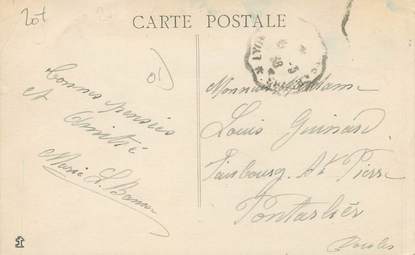 201
CARTE POSTALE
LYON
Bonnes pensées
et Amitié
Marie L.
Monsieur Madame
Louis Guinard
Faubourg St Pierre
Pontarlier
Doubs